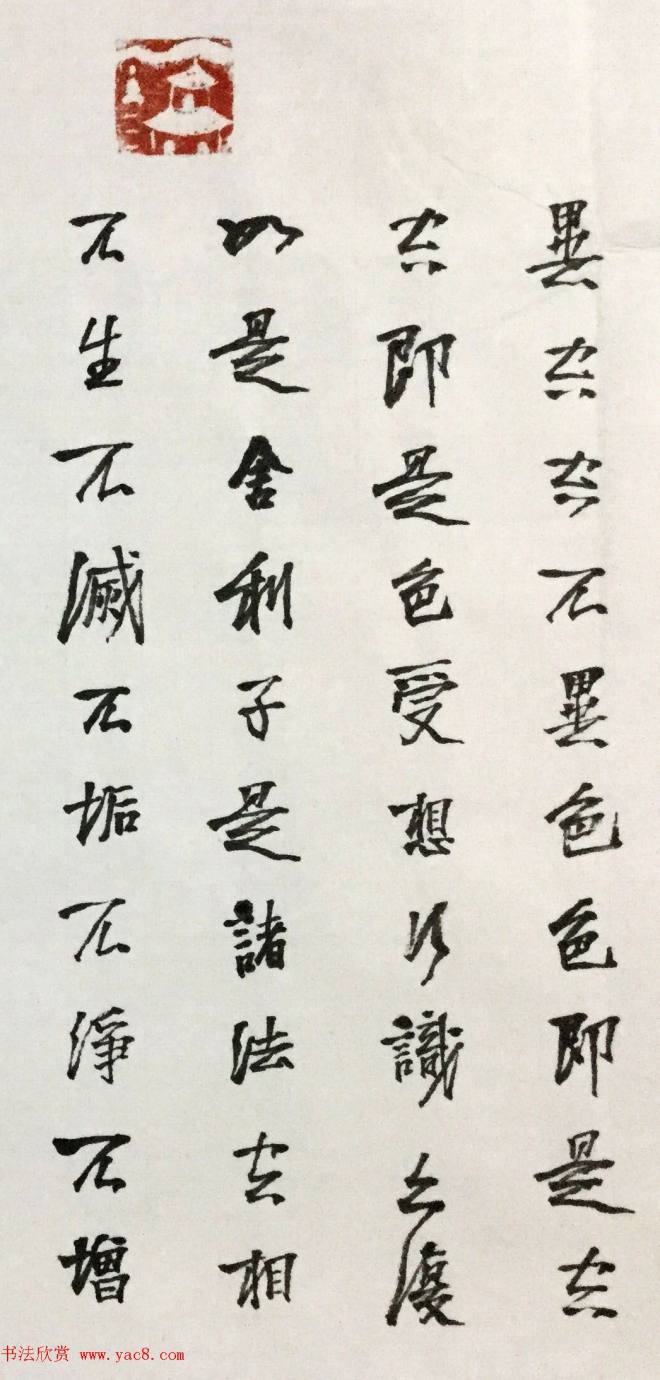 異空空不異色色即是空
空即是色受想行識亦復
如是舍利子是諸法空相
不生不滅不垢不淨不增
书法欣赏 www.yac8.com